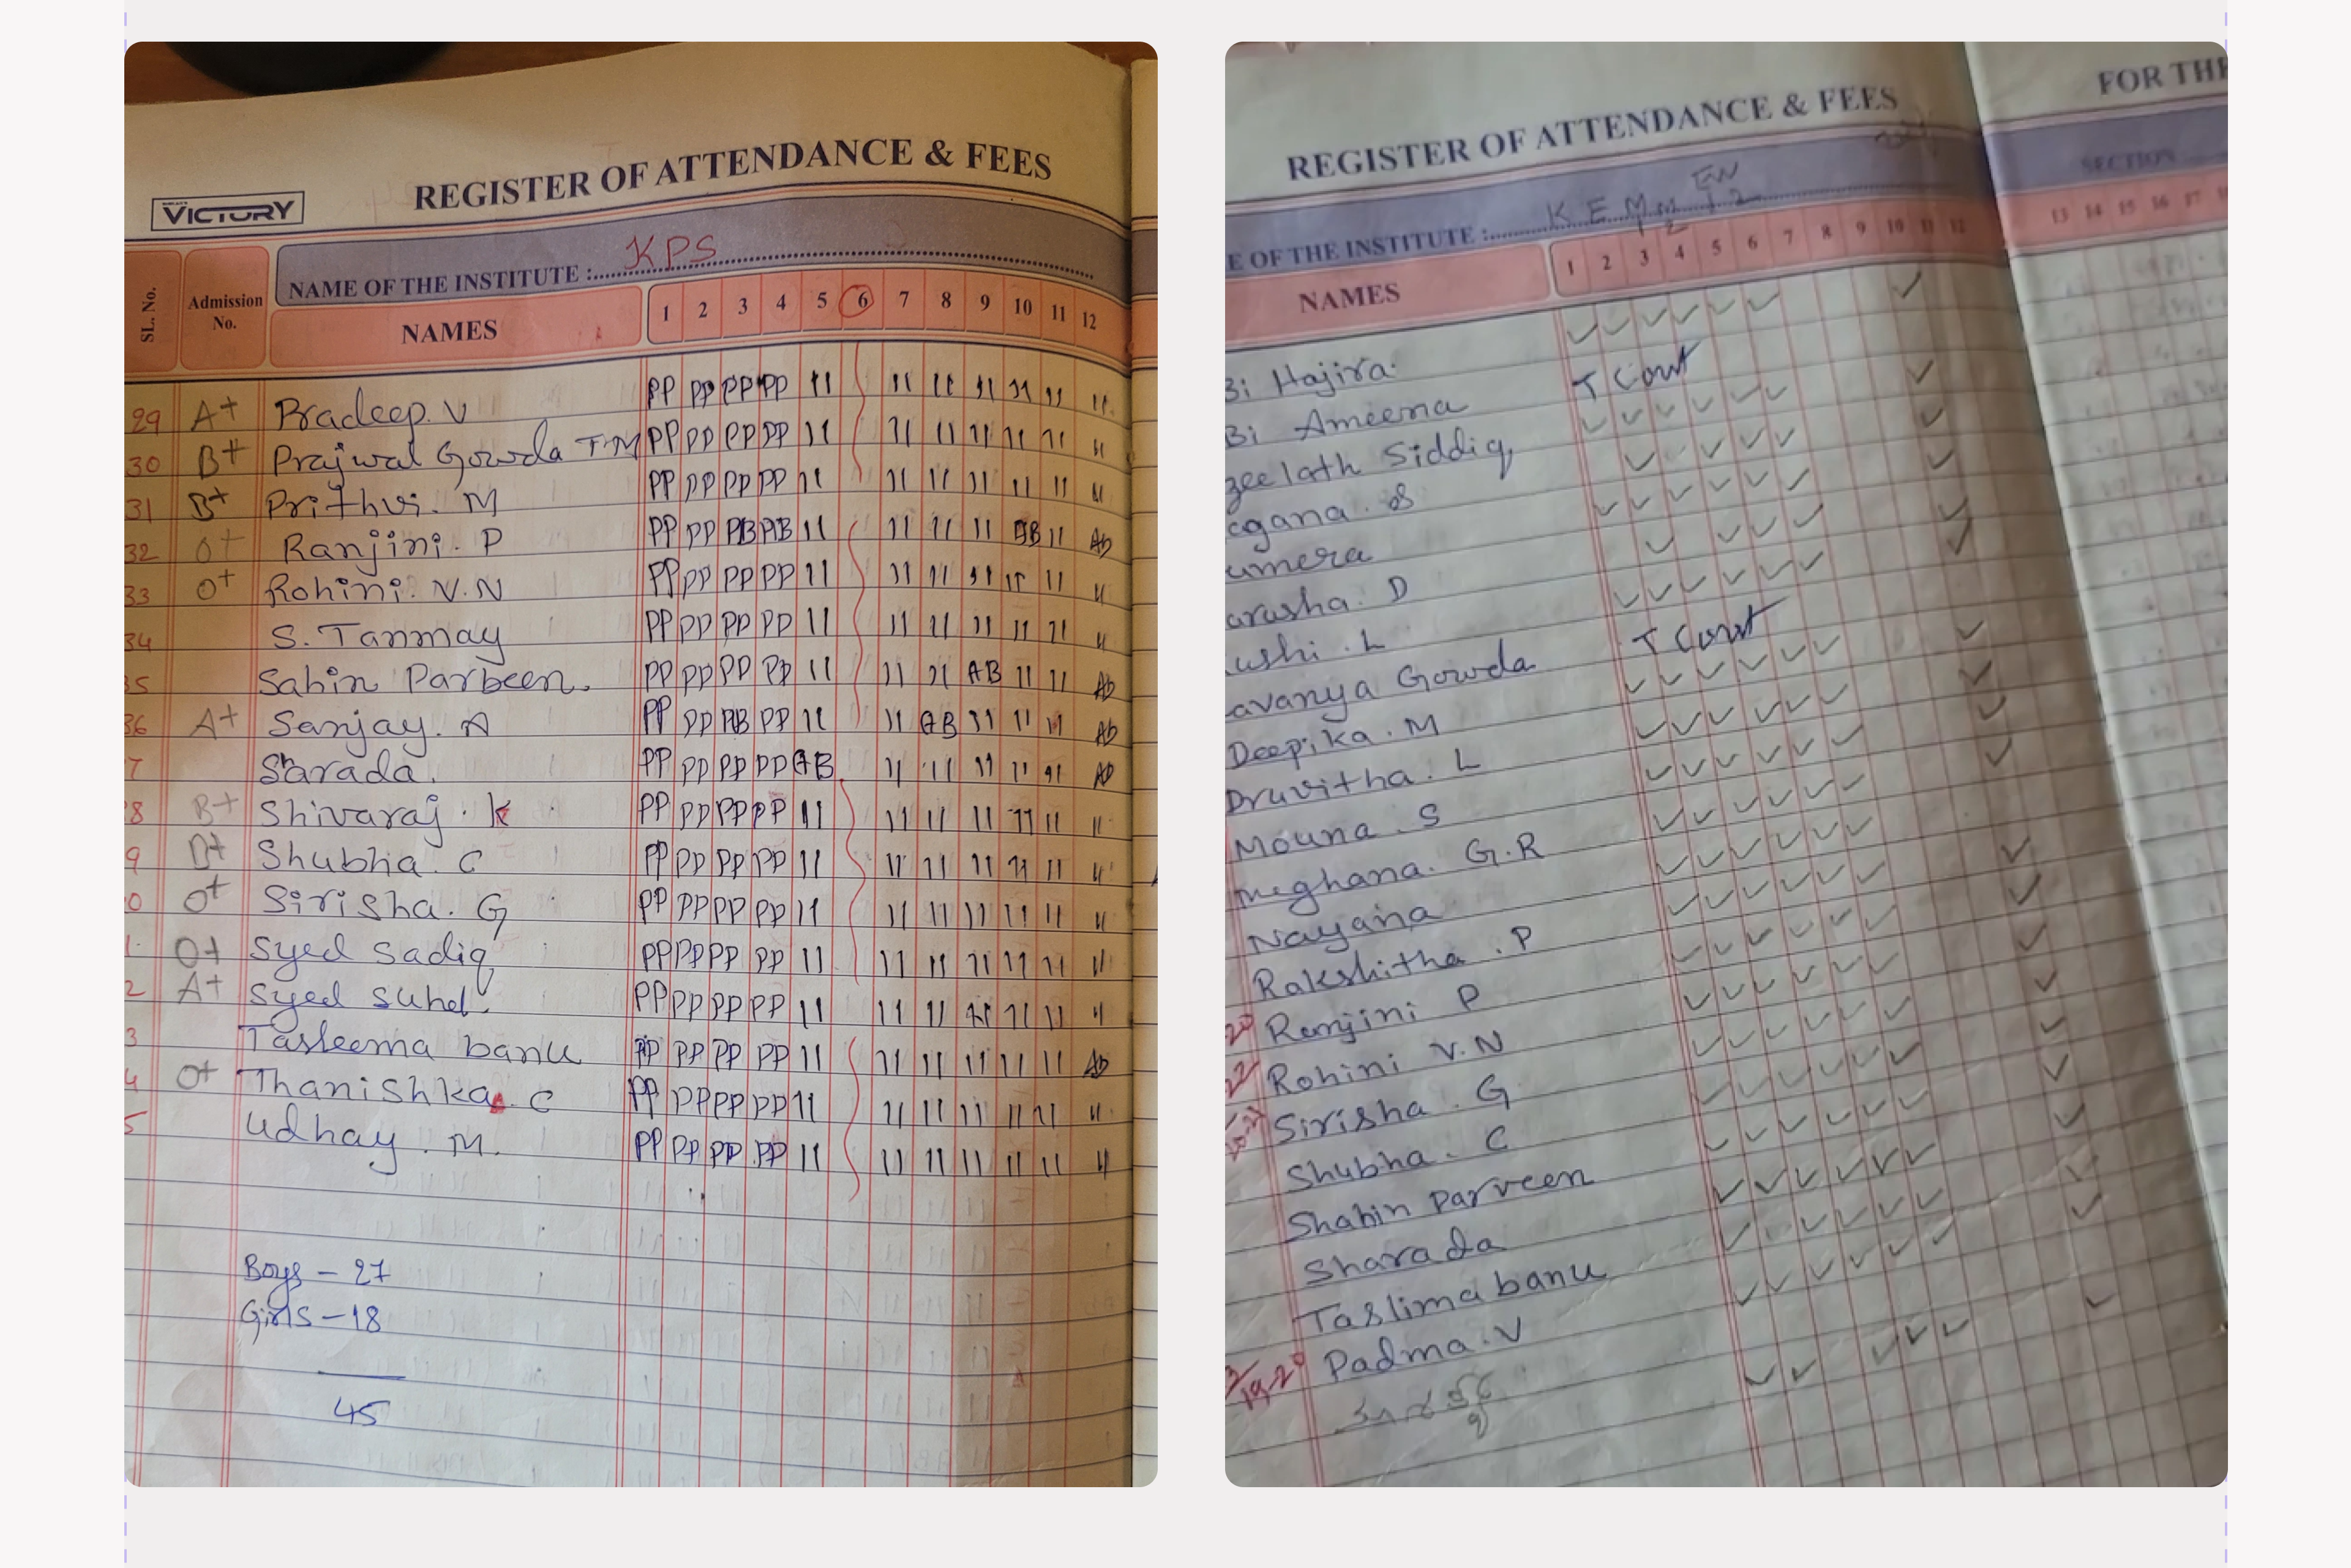 REGISTER OF ATTENDANCE & FEES
VICTORY
NAME OF THE INSTITUTE : KPS
SL. No. Admission No. NAMES 1 2 3 4 5 6 7 8 9 10 11 12
29 A+ Pradeep. V PP PP PP PP 11 11 11 11 11 11 11
30 B+ Prajwal Gowda T.M PP PP PP PP 11 11 11 11 11 11 11
31 B+ Prithvi. M PP PP PP PP 11 11 11 11 11 11 11
32 O+ Ranjini. P PP PP PB AB 11 11 11 11 AB 11 Ab
33 O+ Rohini. V.N PP PP PP PP 11 11 11 11 11 11 11
34 S. Tanmay PP PP PP PP 11 11 11 11 11 11 11
35 Sahin Parbeen. PP PP PP PP 11 11 11 AB 11 11 Ab
36 A+ Sanjay. A PP PP AB PP 11 11 AB 11 11 11 Ab
7 Sarada. PP PP PP PP AB 11 11 11 11 11 Ab
8 B+ Shivaraj. K PP PP PP PP 11 11 11 11 11 11 11
9 B+ Shubha. C PP PP PP PP 11 11 11 11 11 11 11
0 O+ Sirisha. G PP PP PP PP 11 11 11 11 11 11 11
1 O+ Syed Sadiq PP PP PP PP 11 11 11 11 11 11 11
2 A+ Syed Suhel. PP PP PP PP 11 11 11 11 11 11 11
3 Tasleema banu PP PP PP PP 11 11 11 11 11 11 Ab
4 O+ Thanishka. C PP PP PP PP 11 11 11 11 11 11 11
5 Udhay. M. PP PP PP PP 11 11 11 11 11 11 11
Boys - 27
Girls - 18
45
REGISTER OF ATTENDANCE & FEES
FOR THE
E OF THE INSTITUTE :
SECTION
NAMES 1 2 3 4 5 6 7 8 9 10 11 12 13 14 15 16 17
Bi Hajira. ✓ ✓ ✓ ✓ ✓ ✓ ✓
Bi Ameena
zeelath Siddiq ✓ ✓ ✓ ✓ ✓ ✓ ✓
agana. S ✓ ✓ ✓ ✓ ✓
umera ✓ ✓ ✓ ✓ ✓ ✓ ✓
arusha. D ✓ ✓ ✓ ✓ ✓
ushi. L ✓ ✓ ✓ ✓ ✓ ✓ ✓
avanya Gowda
Deepika. M ✓ ✓ ✓ ✓ ✓ ✓ ✓
Druvitha. L ✓ ✓ ✓ ✓ ✓ ✓ ✓
Mouna. S ✓ ✓ ✓ ✓ ✓ ✓ ✓
Meghana. G.R ✓ ✓ ✓ ✓ ✓ ✓
Nayana ✓ ✓ ✓ ✓ ✓ ✓
Rakshitha. P ✓ ✓ ✓ ✓ ✓ ✓ ✓
Ranjini P ✓ ✓ ✓ ✓ ✓ ✓ ✓
Rohini V.N ✓ ✓ ✓ ✓ ✓ ✓ ✓
Sirisha. G ✓ ✓ ✓ ✓ ✓ ✓ ✓
Shubha. C ✓ ✓ ✓ ✓ ✓ ✓ ✓
Shahin parveen ✓ ✓ ✓ ✓ ✓ ✓ ✓
Sharada ✓ ✓ ✓ ✓ ✓ ✓ ✓
Taslima banu ✓ ✓ ✓ ✓ ✓ ✓
Padma. V ✓ ✓ ✓ ✓ ✓ ✓ ✓